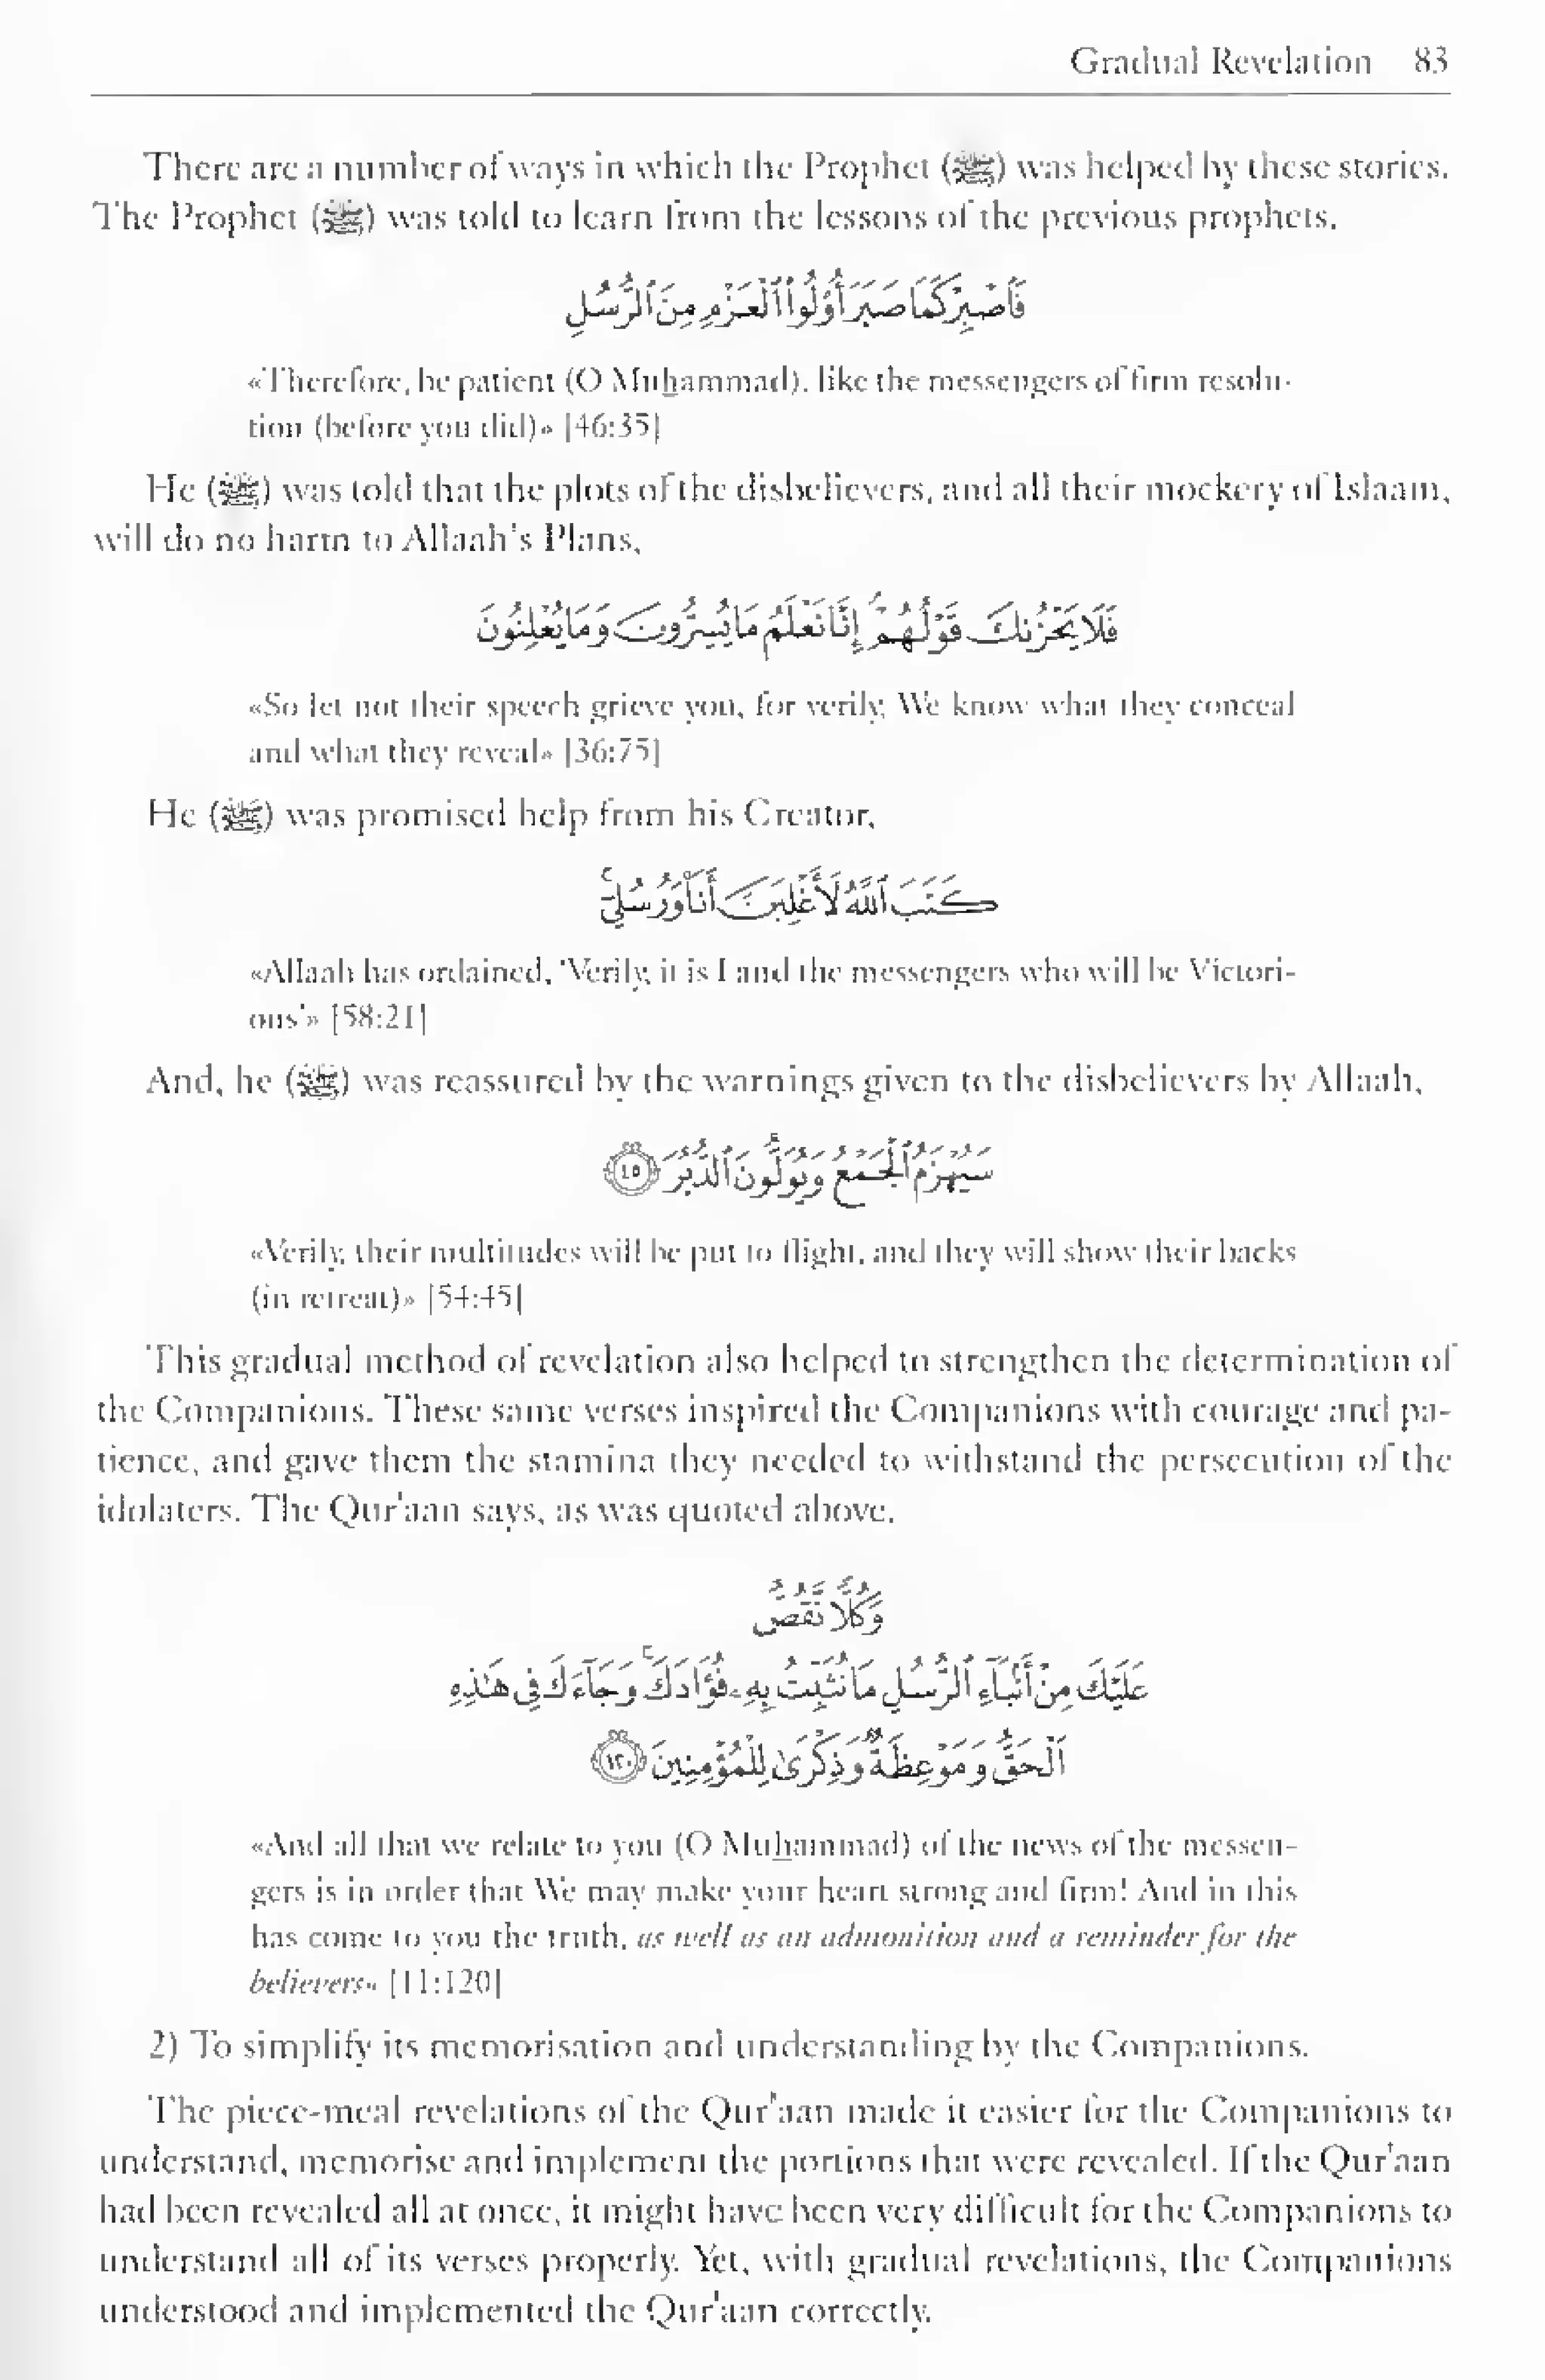 Gradual Revelation 83
There are a number of ways in which the Prophet (ﷺ) was helped by these stories.
The Prophet (ﷺ) was told to learn from the lessons of the previous prophets.
فَٱصْبِرْ كَمَا صَبَرَ أُو۟لُوا۟ ٱلْعَزْمِ مِنَ ٱلرُّسُلِ
«Therefore, be patient (O Muḥammad), like the messengers of firm resolu-
tion (before you did)» [46:35]
He (ﷺ) was told that the plots of the disbelievers, and all their mockery of Islaam,
will do no harm to Allaah's Plans,
فَلَا يَحْزُنكَ قَوْلُهُمْ إِنَّا نَعْلَمُ مَا يُسِرُّونَ وَمَا يُعْلِنُونَ
«So let not their speech grieve you, for verily, We know what they conceal
and what they reveal» [36:75]
He (ﷺ) was promised help from his Creator,
كَتَبَ ٱللَّهُ لَأَغْلِبَنَّ أَنَا۠ وَرُسُلِىٓ ۚ
«Allaah has ordained, 'Verily, it is I and the messengers who will be Victori-
ous'» [58:21]
And, he (ﷺ) was reassured by the warnings given to the disbelievers by Allaah,
سَيُهْزَمُ ٱلْجَمْعُ وَيُوَلُّونَ ٱلدُّبُرَ ٤٥
«Verily, their multitudes will be put to flight, and they will show their backs
(in retreat)» [54:45]
This gradual method of revelation also helped to strengthen the determination of
the Companions. These same verses inspired the Companions with courage and pa-
tience, and gave them the stamina they needed to withstand the persecution of the
idolaters. The Qur'aan says, as was quoted above,
وَكُلًّا نَّقُصُّ
عَلَيْكَ مِنْ أَنۢبَآءِ ٱلرُّسُلِ مَا نُثَبِّتُ بِهِۦ فُؤَادَكَ ۚ وَجَآءَكَ فِى هَـٰذِهِ
ٱلْحَقُّ وَمَوْعِظَةٌ وَذِكْرَىٰ لِلْمُؤْمِنِينَ ١٢٠
«And all that we relate to you (O Muḥammad) of the news of the messen-
gers is in order that We may make your heart strong and firm! And in this
has come to you the truth, as well as an admonition and a reminder for the
believers» [11:120]
2) To simplify its memorisation and understanding by the Companions.
The piece-meal revelations of the Qur'aan made it easier for the Companions to
understand, memorise and implement the portions that were revealed. If the Qur'aan
had been revealed all at once, it might have been very difficult for the Companions to
understand all of its verses properly. Yet, with gradual revelations, the Companions
understood and implemented the Qur'aan correctly.